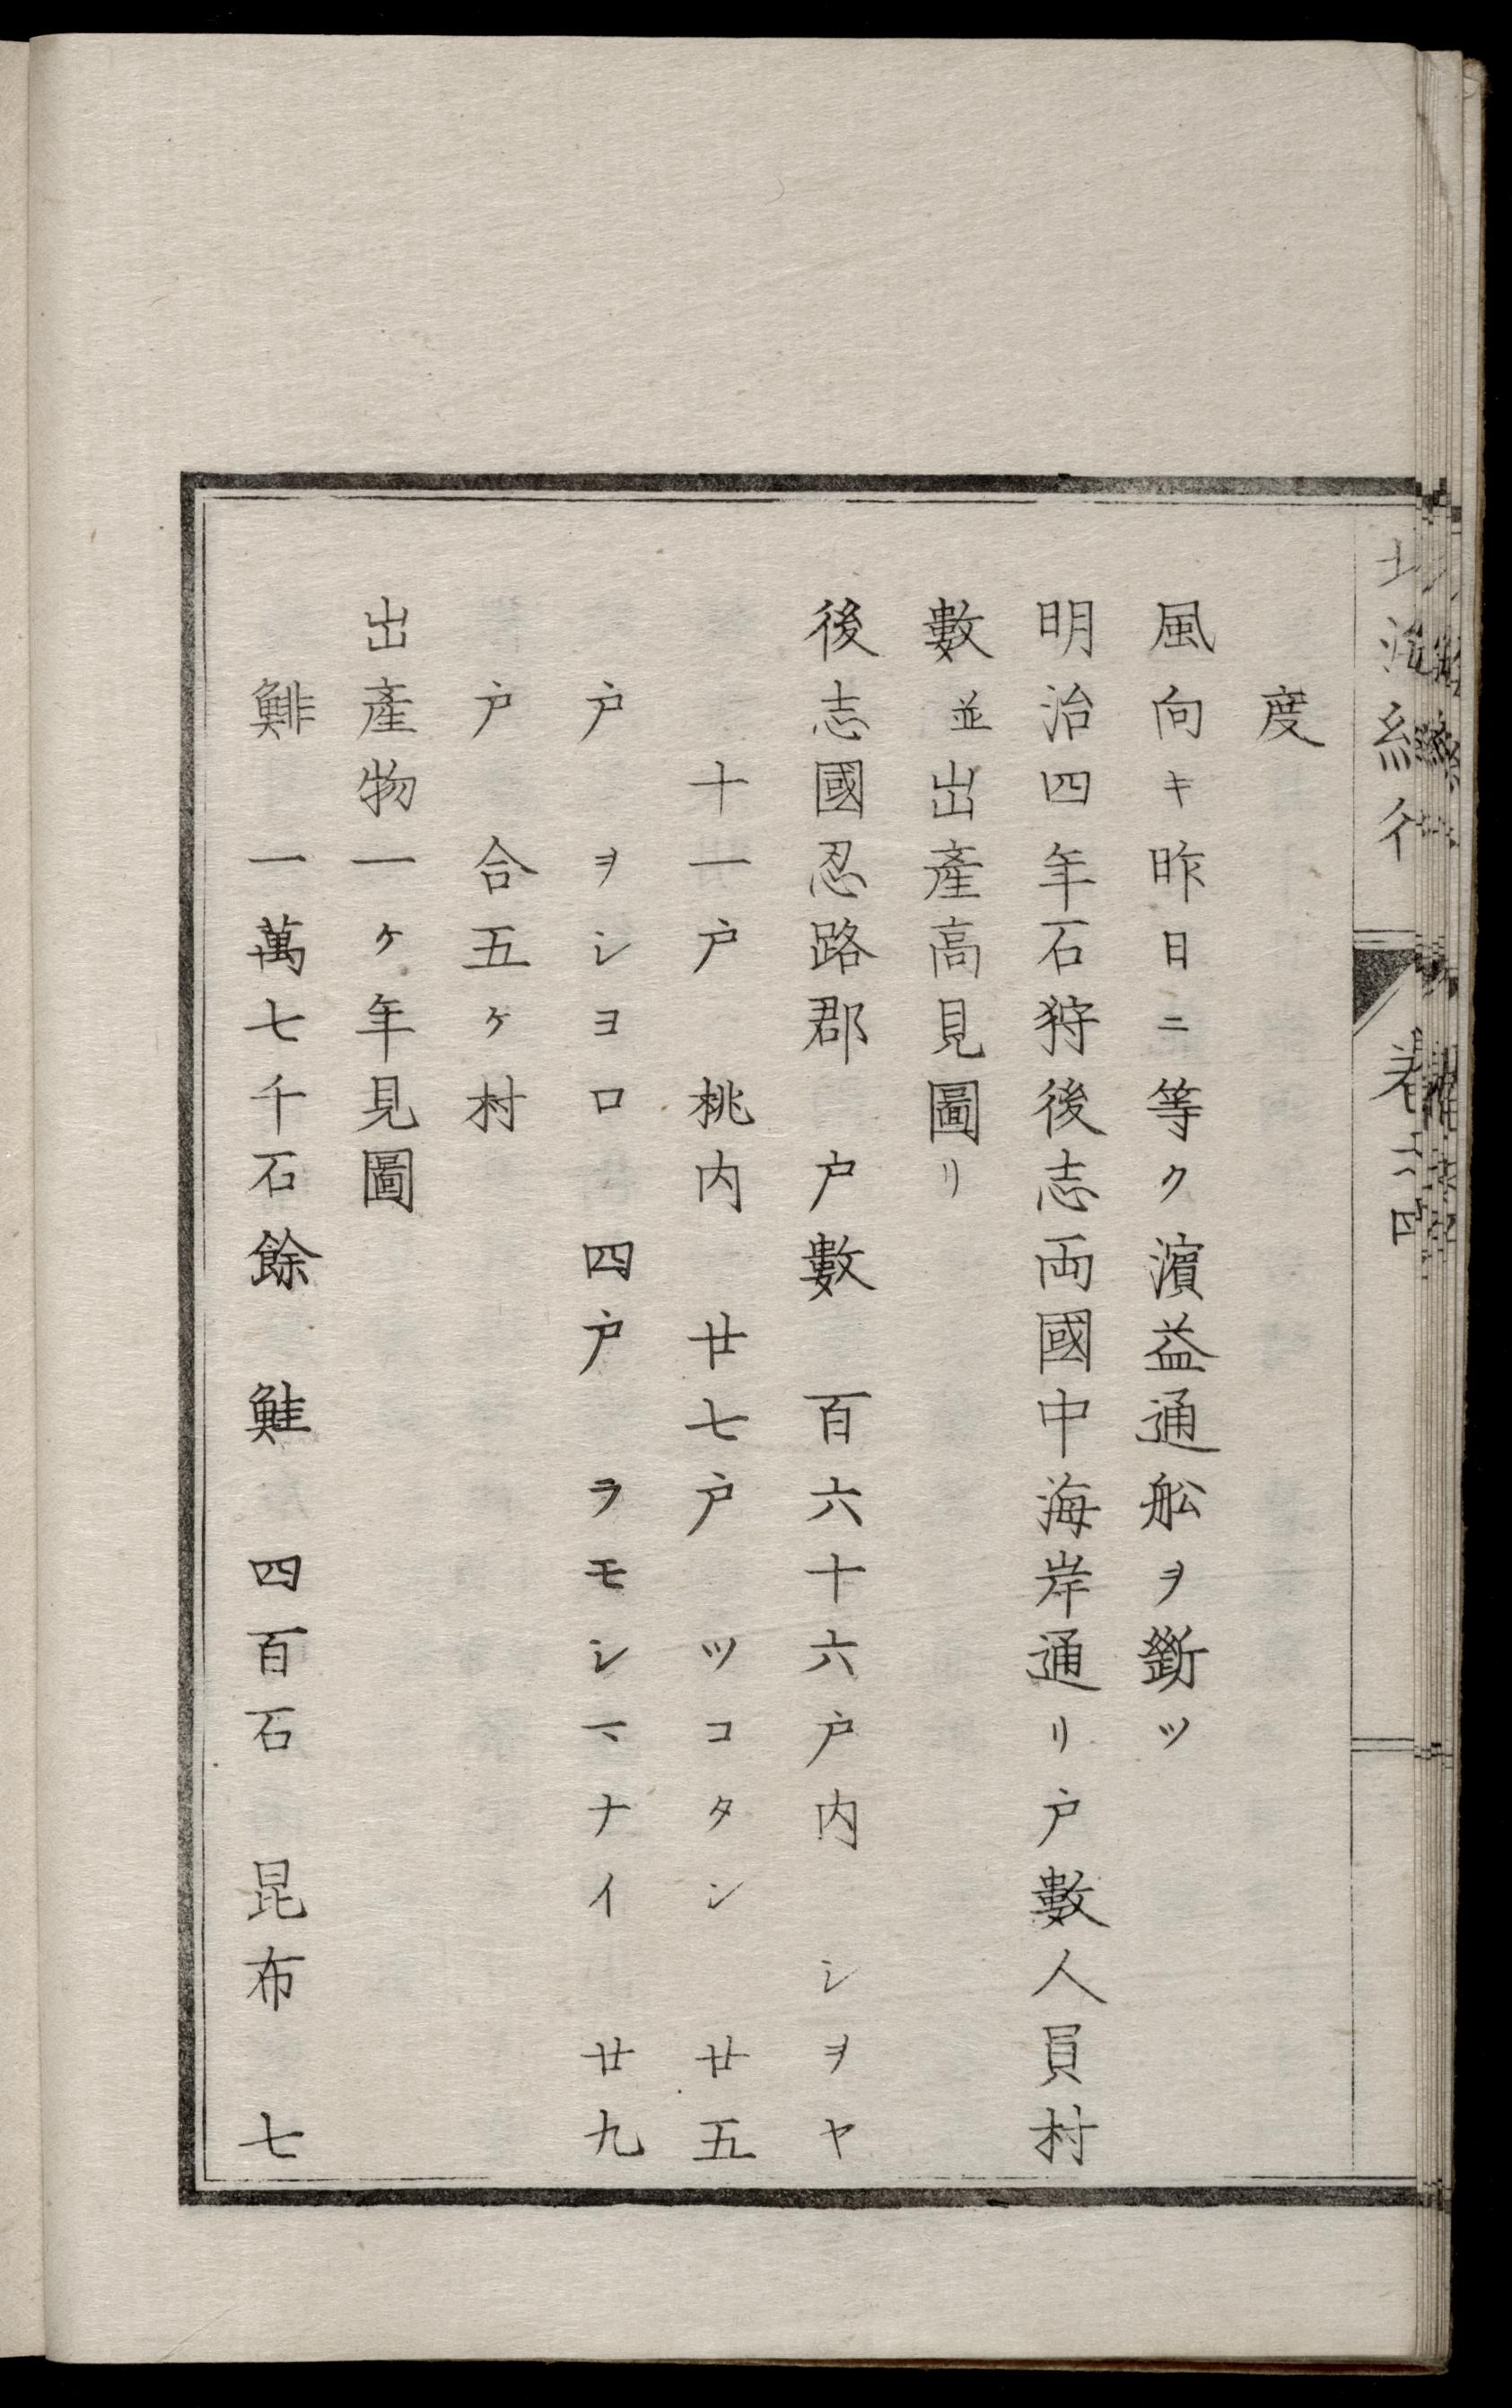 度
風向キ昨日ニ等ク濵益通舩ヲ斷ツ
明治四年石狩後志両國中海岸通リ戸數人員村
數並出產高見圖リ
後志國忍路郡 戸數 百六十六戸内 シヲヤ
十一戸 桃内 廿七戸 ツコタン 廿五
戸 ヲショロ 四戸 ラモシマナイ 廿九
戸 合五ヶ村
出產物一ヶ年見圖
鯡 一萬七千石餘 鮭 四百石 昆布 七